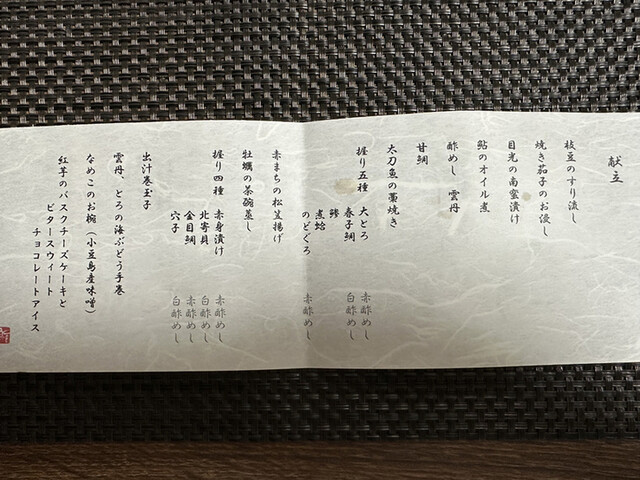 献立
枝豆のすり流し
焼き茄子のお浸し
目光の南蛮漬け
鮎のオイル煮
酢めし 雲丹
甘鯛
太刀魚の藁焼き
握り五種 大とろ 赤酢めし
春子鯛 白酢めし
鰺
煮蛤
のどぐろ 赤酢めし
赤まちの松笠揚げ
牡蠣の茶碗蒸し
握り四種 赤身漬け 赤酢めし
北寄貝 白酢めし
金目鯛 赤酢めし
穴子 白酢めし
出汁巻玉子
雲丹、とろの海ぶどう手巻
なめこのお椀(小豆島産味噌)
紅芋のバスクチーズケーキと
ビタースウィート
チョコレートアイス